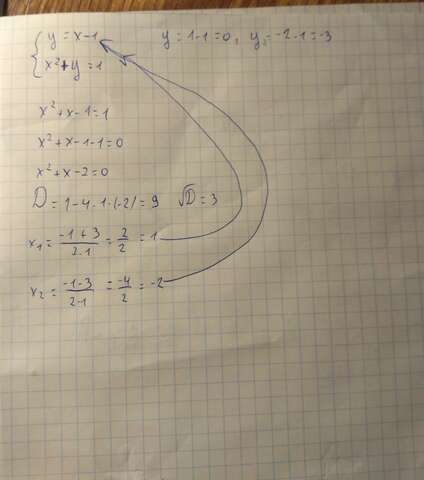 y = x-1 y = 1-1 = 0, y = -2-1 = -3
x²+y = 1
x²+x-1=1
x²+x-1-1=0
x²+x-2=0
D = 1-4·1·(-2) = 9 √D = 3
x₁ = (-1+3)/(2·1) = 2/2 = 1
x₂ = (-1-3)/(2·1) = -4/2 = -2